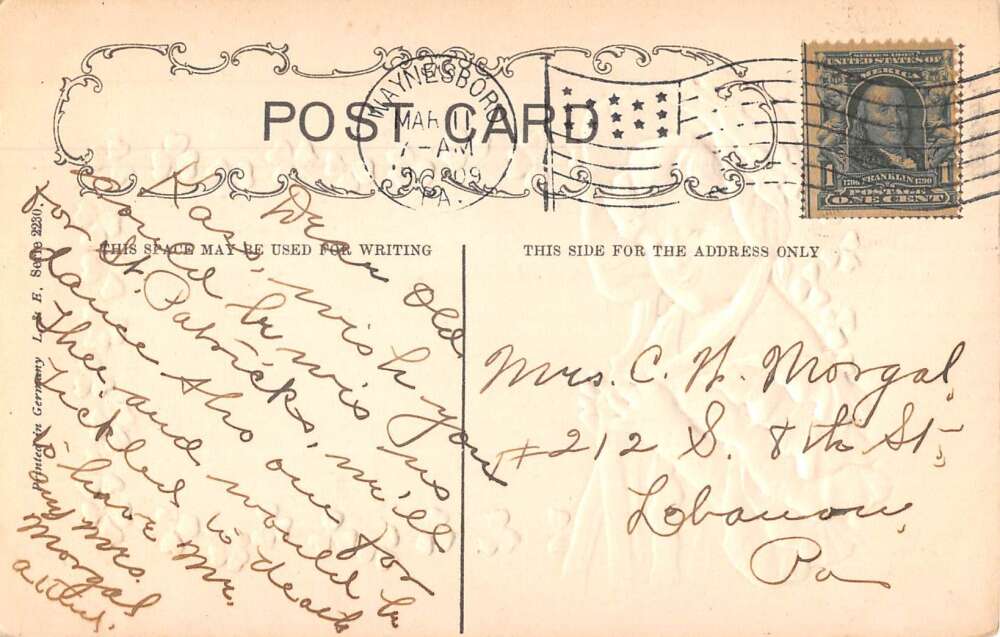 POST CARD
WAYNESBORO
MAR 11
7-AM
1909
PA.
SERIES 1902
UNITED STATES OF
AMERICA
1 1706 FRANKLIN 1790 1
POSTAGE
ONE CENT
THIS SPACE MAY BE USED FOR WRITING
THIS SIDE FOR THE ADDRESS ONLY
Printed in Germany L. & E. Serie 2230.
Dear old
Lass, wish you
could be wis us
for St. Patricks, we'll
dance the one for
Thee and would be
Tickled to death
to have Mr.
and Mrs.
Morgal
Mrs. C. W. Morgal
#212 S. 8th St.
Lebanon,
Pa